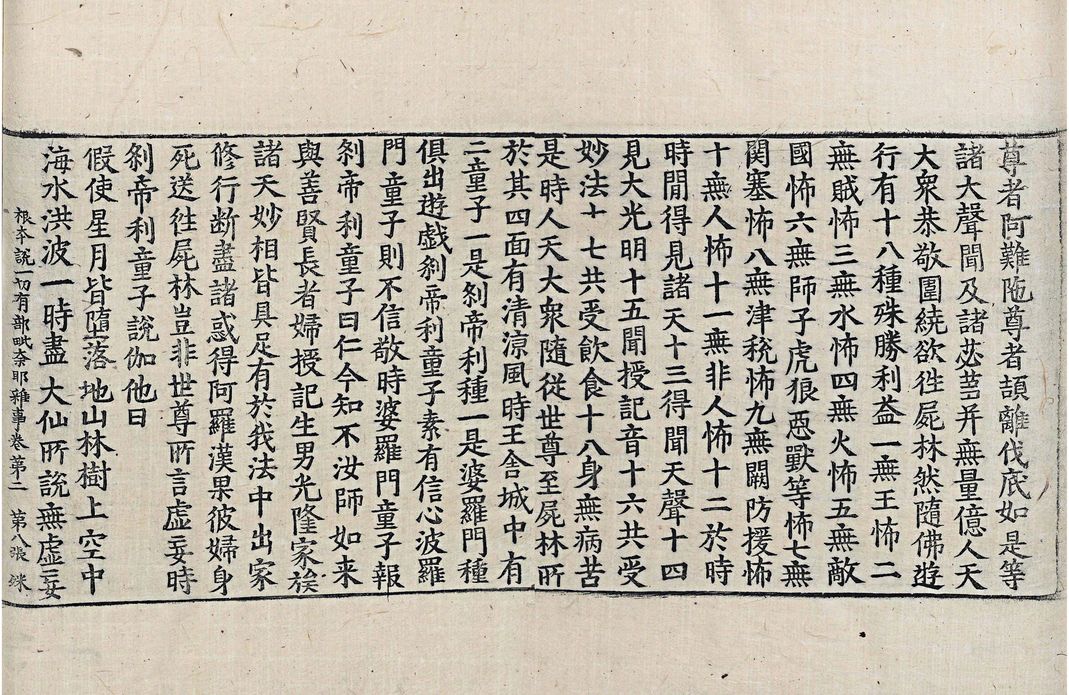 尊者阿難陁尊者頡離伐底如是等
諸大聲聞及諸苾蒭并無量億人天
大衆恭敬圍繞欲徃屍林然隨佛遊
行有十八種殊勝利益一無王怖二
無賊怖三無水怖四無火怖五無敵
國怖六無師子虎狼惡獸等怖七無
関塞怖八無津稅怖九無闕防援怖
十無人怖十一無非人怖十二於時
時閒得見諸天十三得聞天聲十四
見大光明十五聞授記音十六共受
妙法十七共受飲食十八身無病苦
是時人天大衆隨從世尊至屍林所
於其四面有清涼風時王舍城中有
二童子一是刹帝利種一是婆羅門種
俱出遊戱刹帝利童子素有信心波羅
門童子則不信敬時婆羅門童子報
刹帝利童子曰仁今知不汝師如来
與善賢長者婦授記生男光隆家族
諸天妙相皆具足有於我法中出家
修行断盡諸惑得阿羅漢果彼婦身
死送徃屍林豈非世尊所言虛妄時
刹帝利童子說伽他曰
假使星月皆墮落地山林樹上空中
海水洪波一時盡大仙所說無虛妄
根夲說一切有部毗奈耶雜事卷第二 第八張 㳽